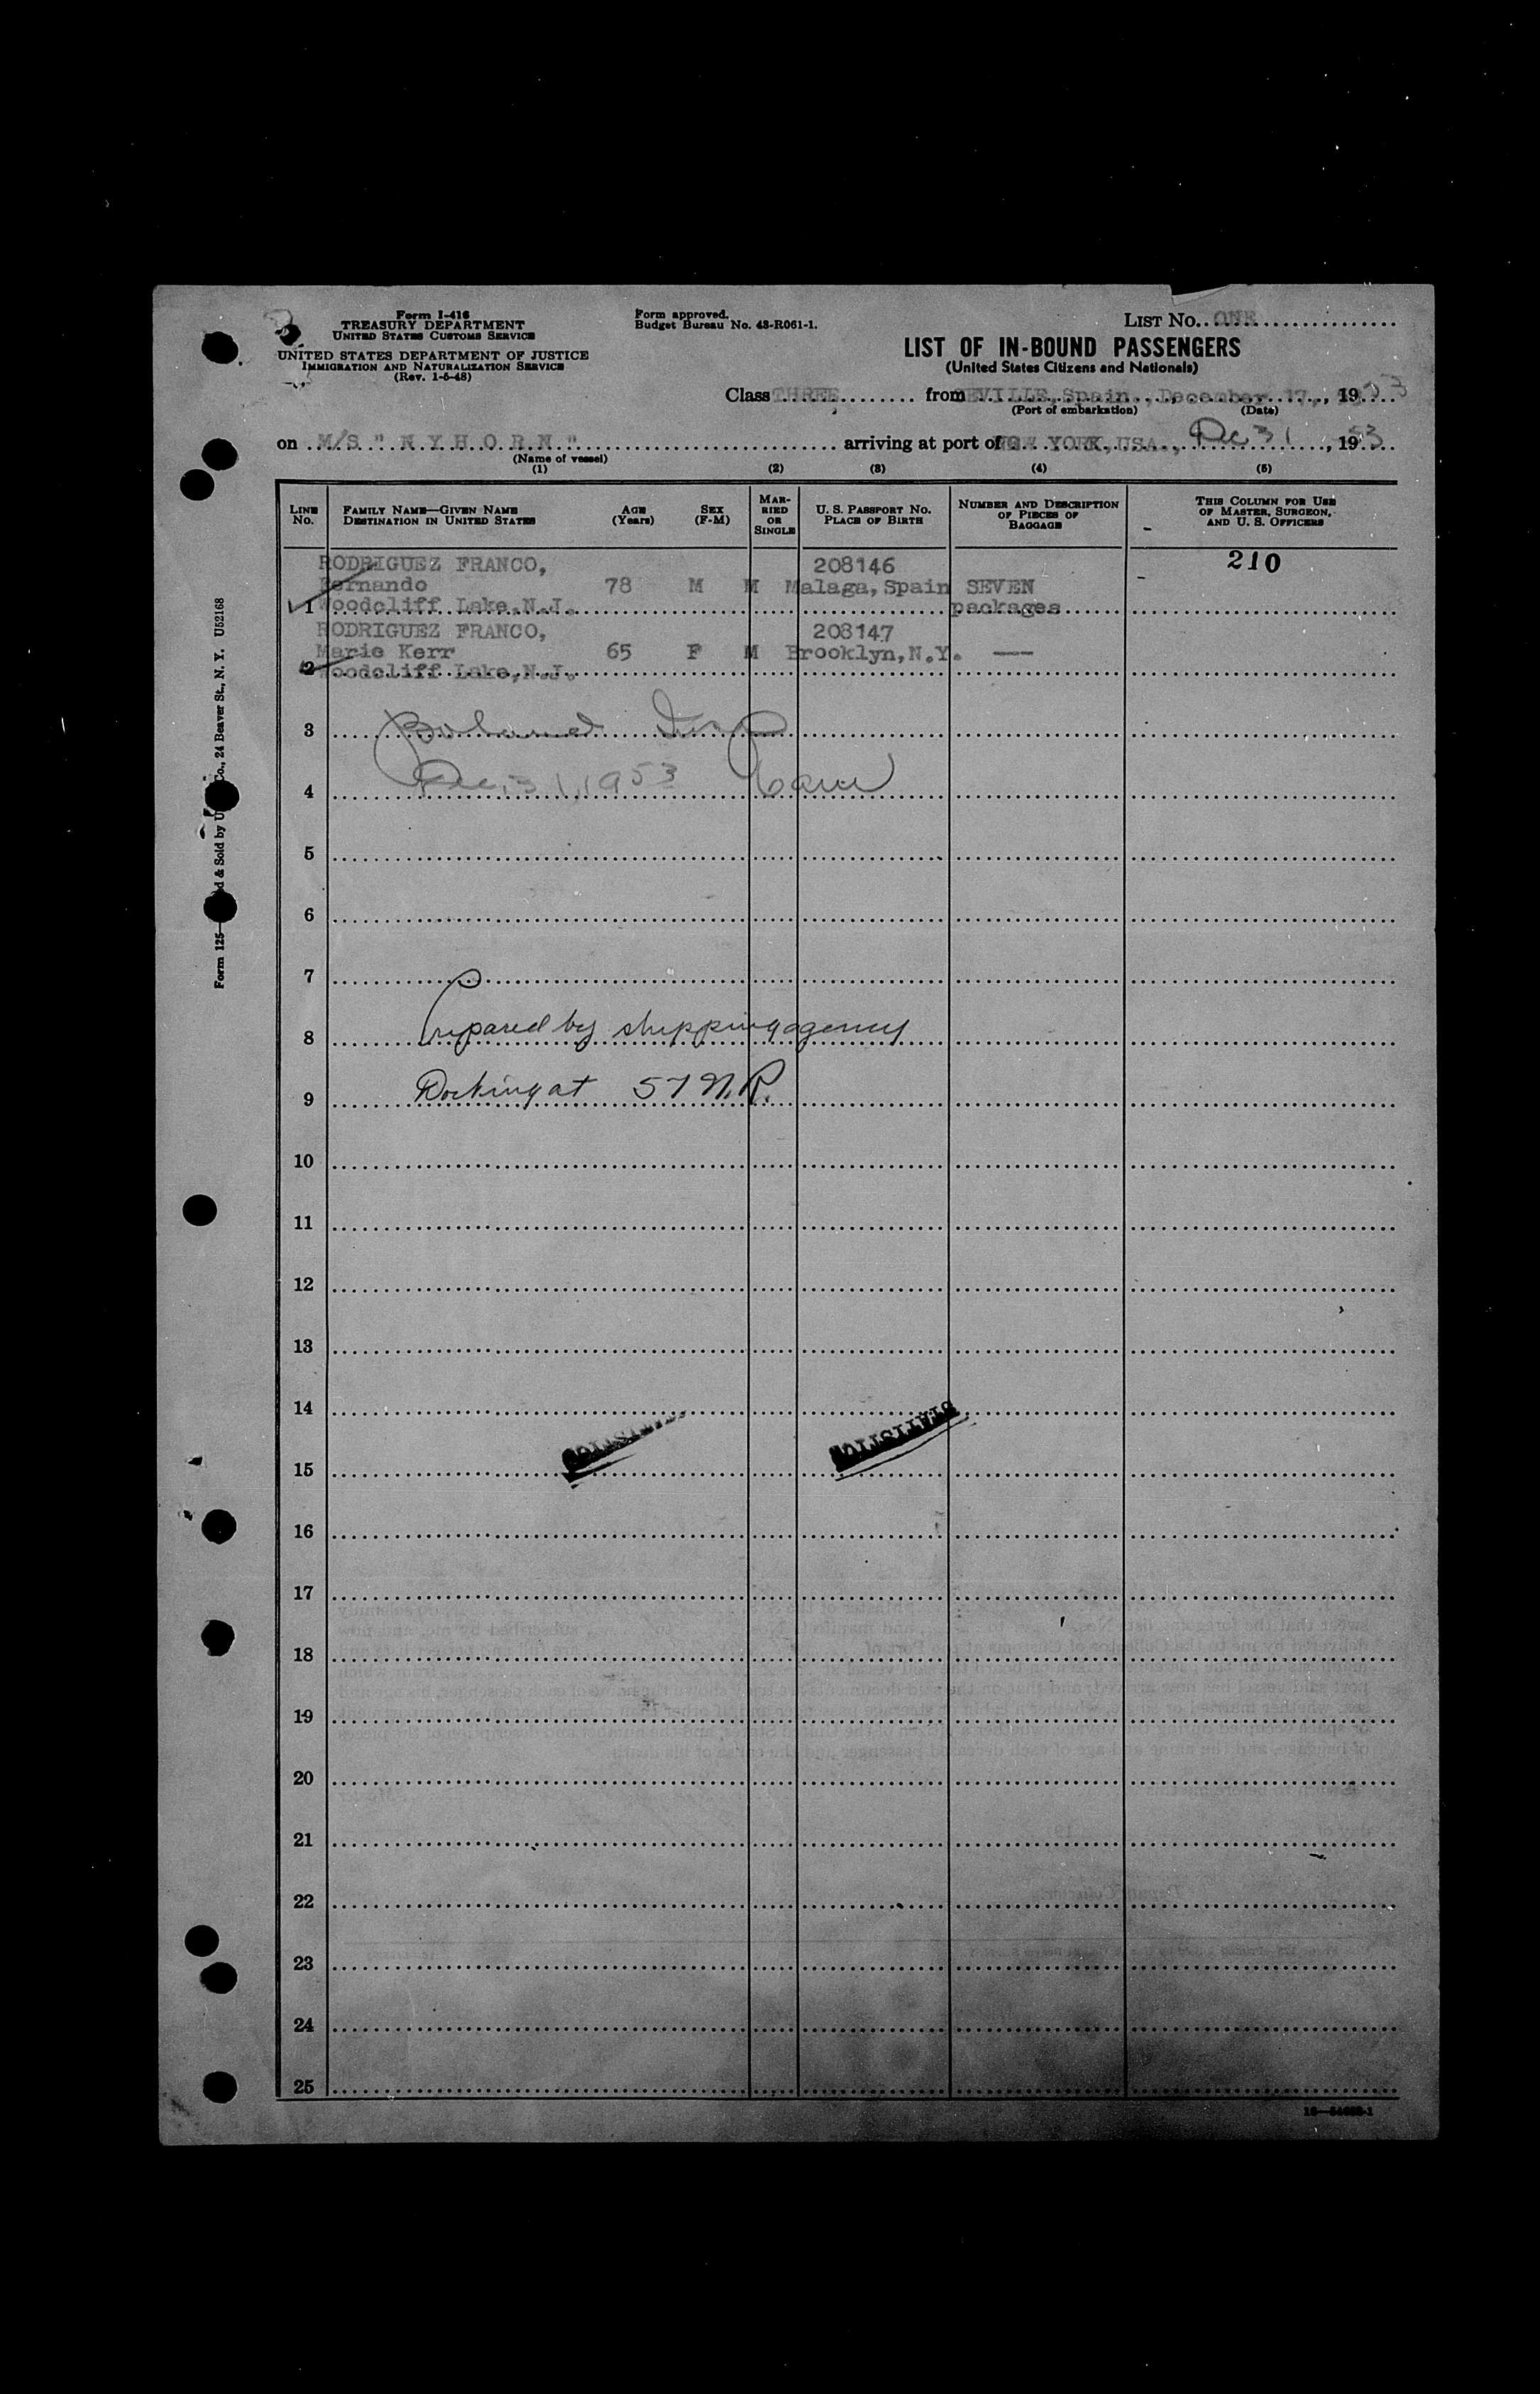 Form I-416
TREASURY DEPARTMENT
UNITED STATES CUSTOMS SERVICE
UNITED STATES DEPARTMENT OF JUSTICE
IMMIGRATION AND NATURALIZATION SERVICE
(Rev. 1-6-48)
Form approved.
Budget Bureau No. 43-R061-1.
LIST No. ONE
LIST OF IN-BOUND PASSENGERS
(United States Citizens and Nationals)
Class THREE from SEVILLE, Spain., December 17, 1953
(Port of embarkation) (Date)
on M/S " N Y H O R N " arriving at port of NEW YORK, USA., Dec 31, 1953
(Name of vessel)
(1) (2) (3) (4) (5)
LINE No. FAMILY NAME—GIVEN NAME DESTINATION IN UNITED STATES AGE (Years) SEX (F-M) MARRIED OR SINGLE U. S. PASSPORT No. PLACE OF BIRTH NUMBER AND DESCRIPTION OF PIECES OF BAGGAGE THIS COLUMN FOR USE OF MASTER, SURGEON, AND U. S. OFFICERS
RODRIGUEZ FRANCO, 208146 210
Fernando 78 M M Malaga, Spain SEVEN
1 Woodcliff Lake, N.J. packages
RODRIGUEZ FRANCO, 208147
Marie Kerr 65 F M Brooklyn, N.Y. ---
2 Woodcliff Lake, N.J.
3
4 Dec 31, 1953
5
6
7
8 Prepared by shipping agency
9 Docking at 57 N.R.
10
11
12
13
14
STATISTICS
15
16
17
18
19
20
21
22
23
24
25
Form 125— & Sold by Co., 24 Beaver St., N. Y. U52168